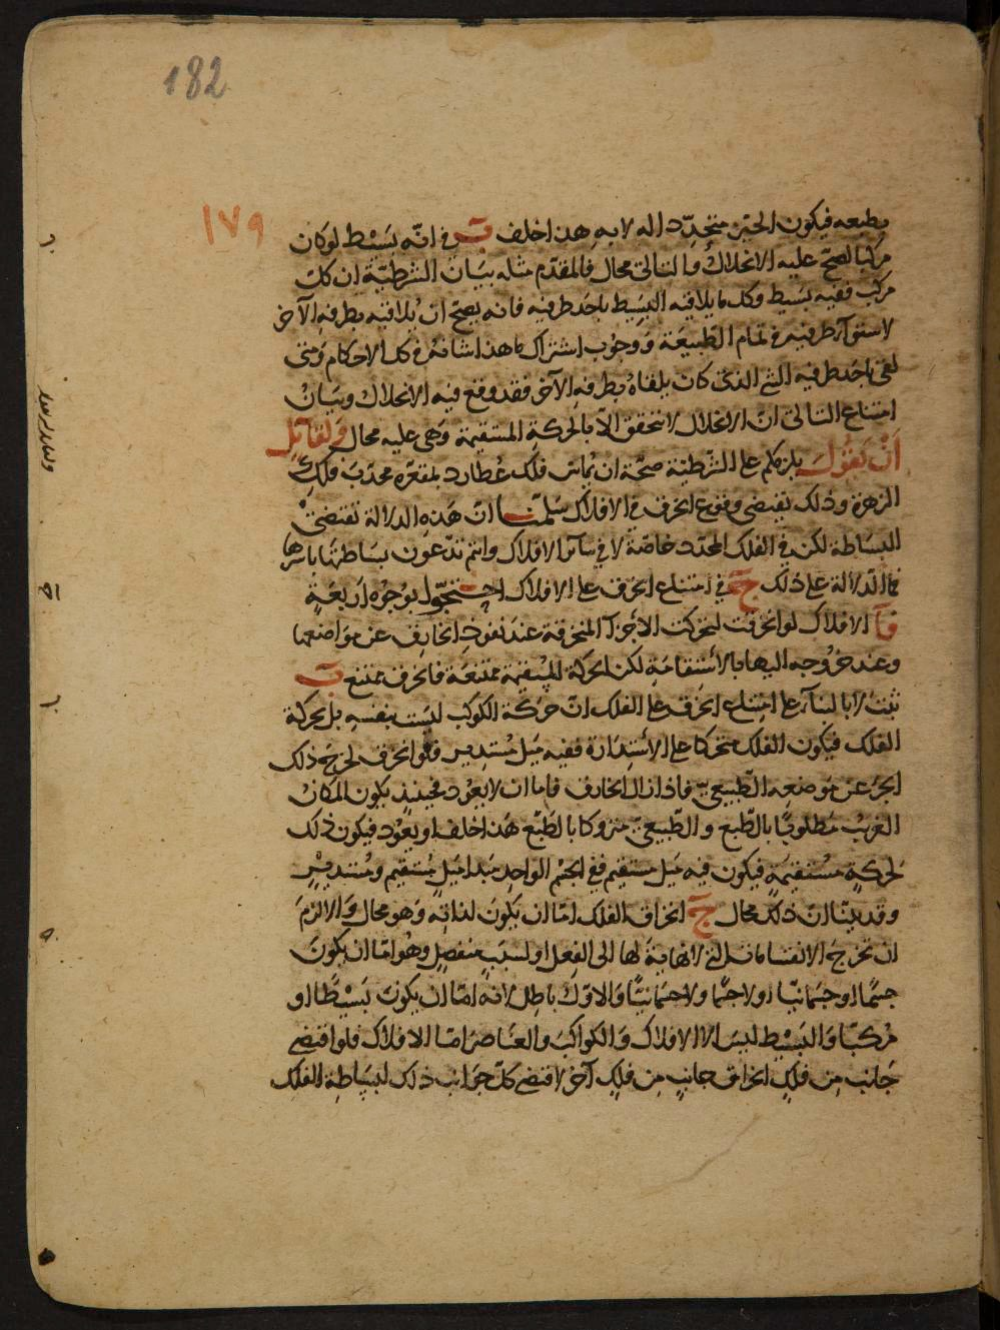 182
١٧٩
بطبعه فيكون الحيّز متحدّد اله لا به هذا خلف ب في انّه بسيط لو كان
مركبا لصحّ عليه الانحلاك والتالي محال فالمقدّم مثله بيان الشرطيّة ان كل
مركب ففيه بسيط وكل ما يلاقيه البسيط باحد طرفيه فانه يصحّ ان يلاقيه بطرفه الآخر
لاستوآ طرفيه في تمام الطّبيعة ووجوب اشتراك ما هذا شانه في كل الاحكام ومتى
لقى باحد طرفيه الشئ الذى كان يلقاه بطرفه الآخر فقد وقع فيه الانحلاك وبيان
امتناع التالى انّ الانحلال لا تتحقق الّا بالحركة المستقيمة وهى عليه محال ولقائل
أن يقول يلزمكم على الشرطيّة صحّة ان يماس فلك عطارد بمقعّره محدّب فلك
الزهرة وذلك يقتضى وقوع الخرق في الافلاك سلمنا انّ هذه الدلالة تقتضى
البساطة لكن في الفلك المحدّد خاصّة لا في سآئر الافلاك وانتم تدّعون بساطتها باسرها
فما الدّلالة على ذلك ج في امتناع الخرق على الافلاك احتجّوا بوجوه اربعة
فآ الافلاك لو انخرقت لتحركت الاجزآ المنخرقة عند نفوذ الخارق عن مواضعها
وعند خروجه اليها بالاستقامة لكن الحركة المستقيمة ممتنعة فالخرق ممتنع ب
الفلك فيكون الفلك متحركا على الاستدارة ففيه ميل مستدير فلو انخرق لخرج ذلك
الجزء عن موضعه الطّبيعىّ فاذا زال الخارق فاما ان لا يعود فحينئذ يكون المكان
الغريب مطلوبًا بالطّبع والطّبيعىّ متروكا بالطّبع هذا خلف او يعود فيكون ذلك
لحركة مستقيمة فيكون فيه ميل مستقيم ففى الجسم الواحد مبدا ميل مستقيم ومستدير
وقد بينّا انّ ذلك محال ج انخراق الفلك امّا ان يكون لذاته وهو محال والا لزم
ان تخرج الانقسامات التى لا نهاية لها الى الفعل او لسبب منفصل وهو امّا ان يكون
جسمًا او جسمانيّا او لا جسمًا ولا جسمانيًّا والاوّل باطل لانه امّا ان يكون بسيطًا او
مركبًا والبسيط ليس الا الافلاك والكواكب والعناصر امّا الافلاك فلو اقتضى
جانب من فلك انخراق جانب من فلك آخر لاقتضى كلّ جوانب ذلك لبساطة الفلك